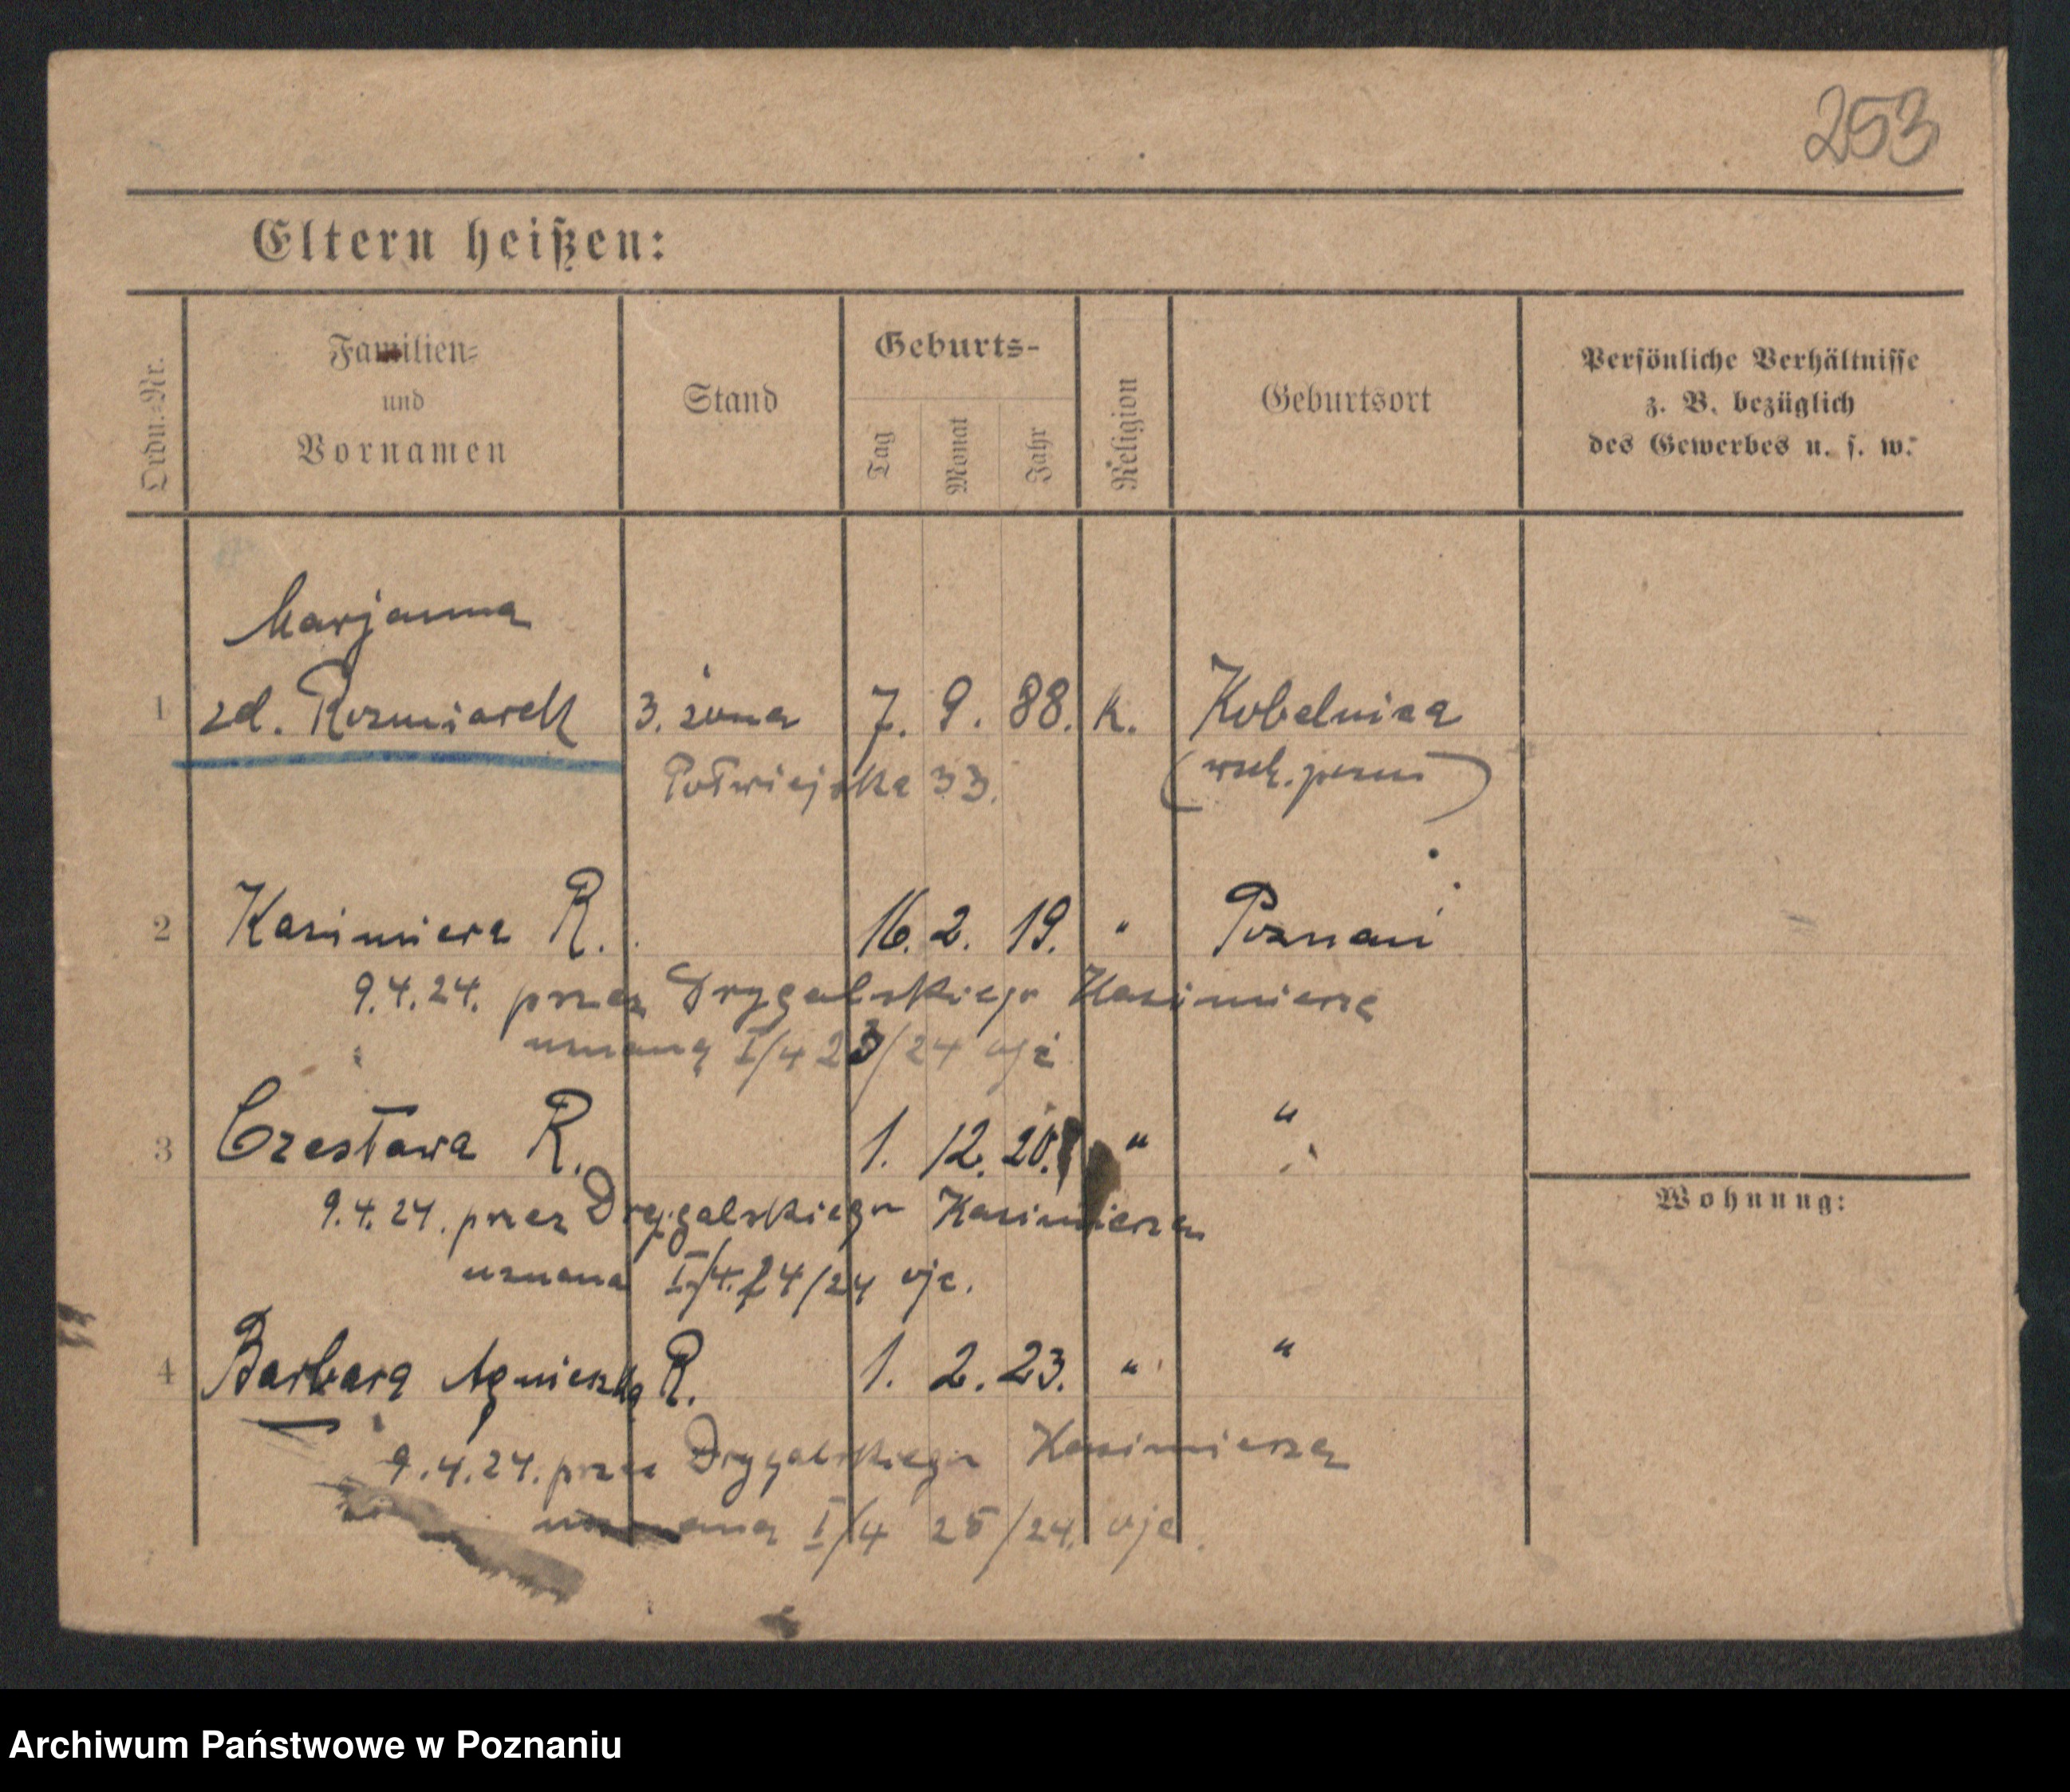 253
Eltern heißen:
Ordn.-Nr.
Familien-
und
Vornamen
Stand
Geburts-
Tag
Monat
Jahr
Religion
Geburtsort
Persönliche Verhältnisse
z. B. bezüglich
des Gewerbes u. s. w.
Marjanna
1 zd. Rozmiarek 3. żona 7. 9. 88. k. Kobelnica
Półwiejska 33. (wsch. pozn)
2 Kazimiera R. 16. 2. 19. " Poznań
9.4.24. przez Drygalskiego Kazimierza
uznana I/4 23/24 oję
3 Czesława R. 1. 12. 20. " "
9.4.24. przez Drygalskiego Kazimierza
uznana I/4. 24/24 oje.
Wohnung:
4 Barbara Agnieszka R. 1. 2. 23. " "
9.4.24. przez Drygalskiego Kazimierza
uznana I/4 25/24. oje.
Archiwum Państwowe w Poznaniu